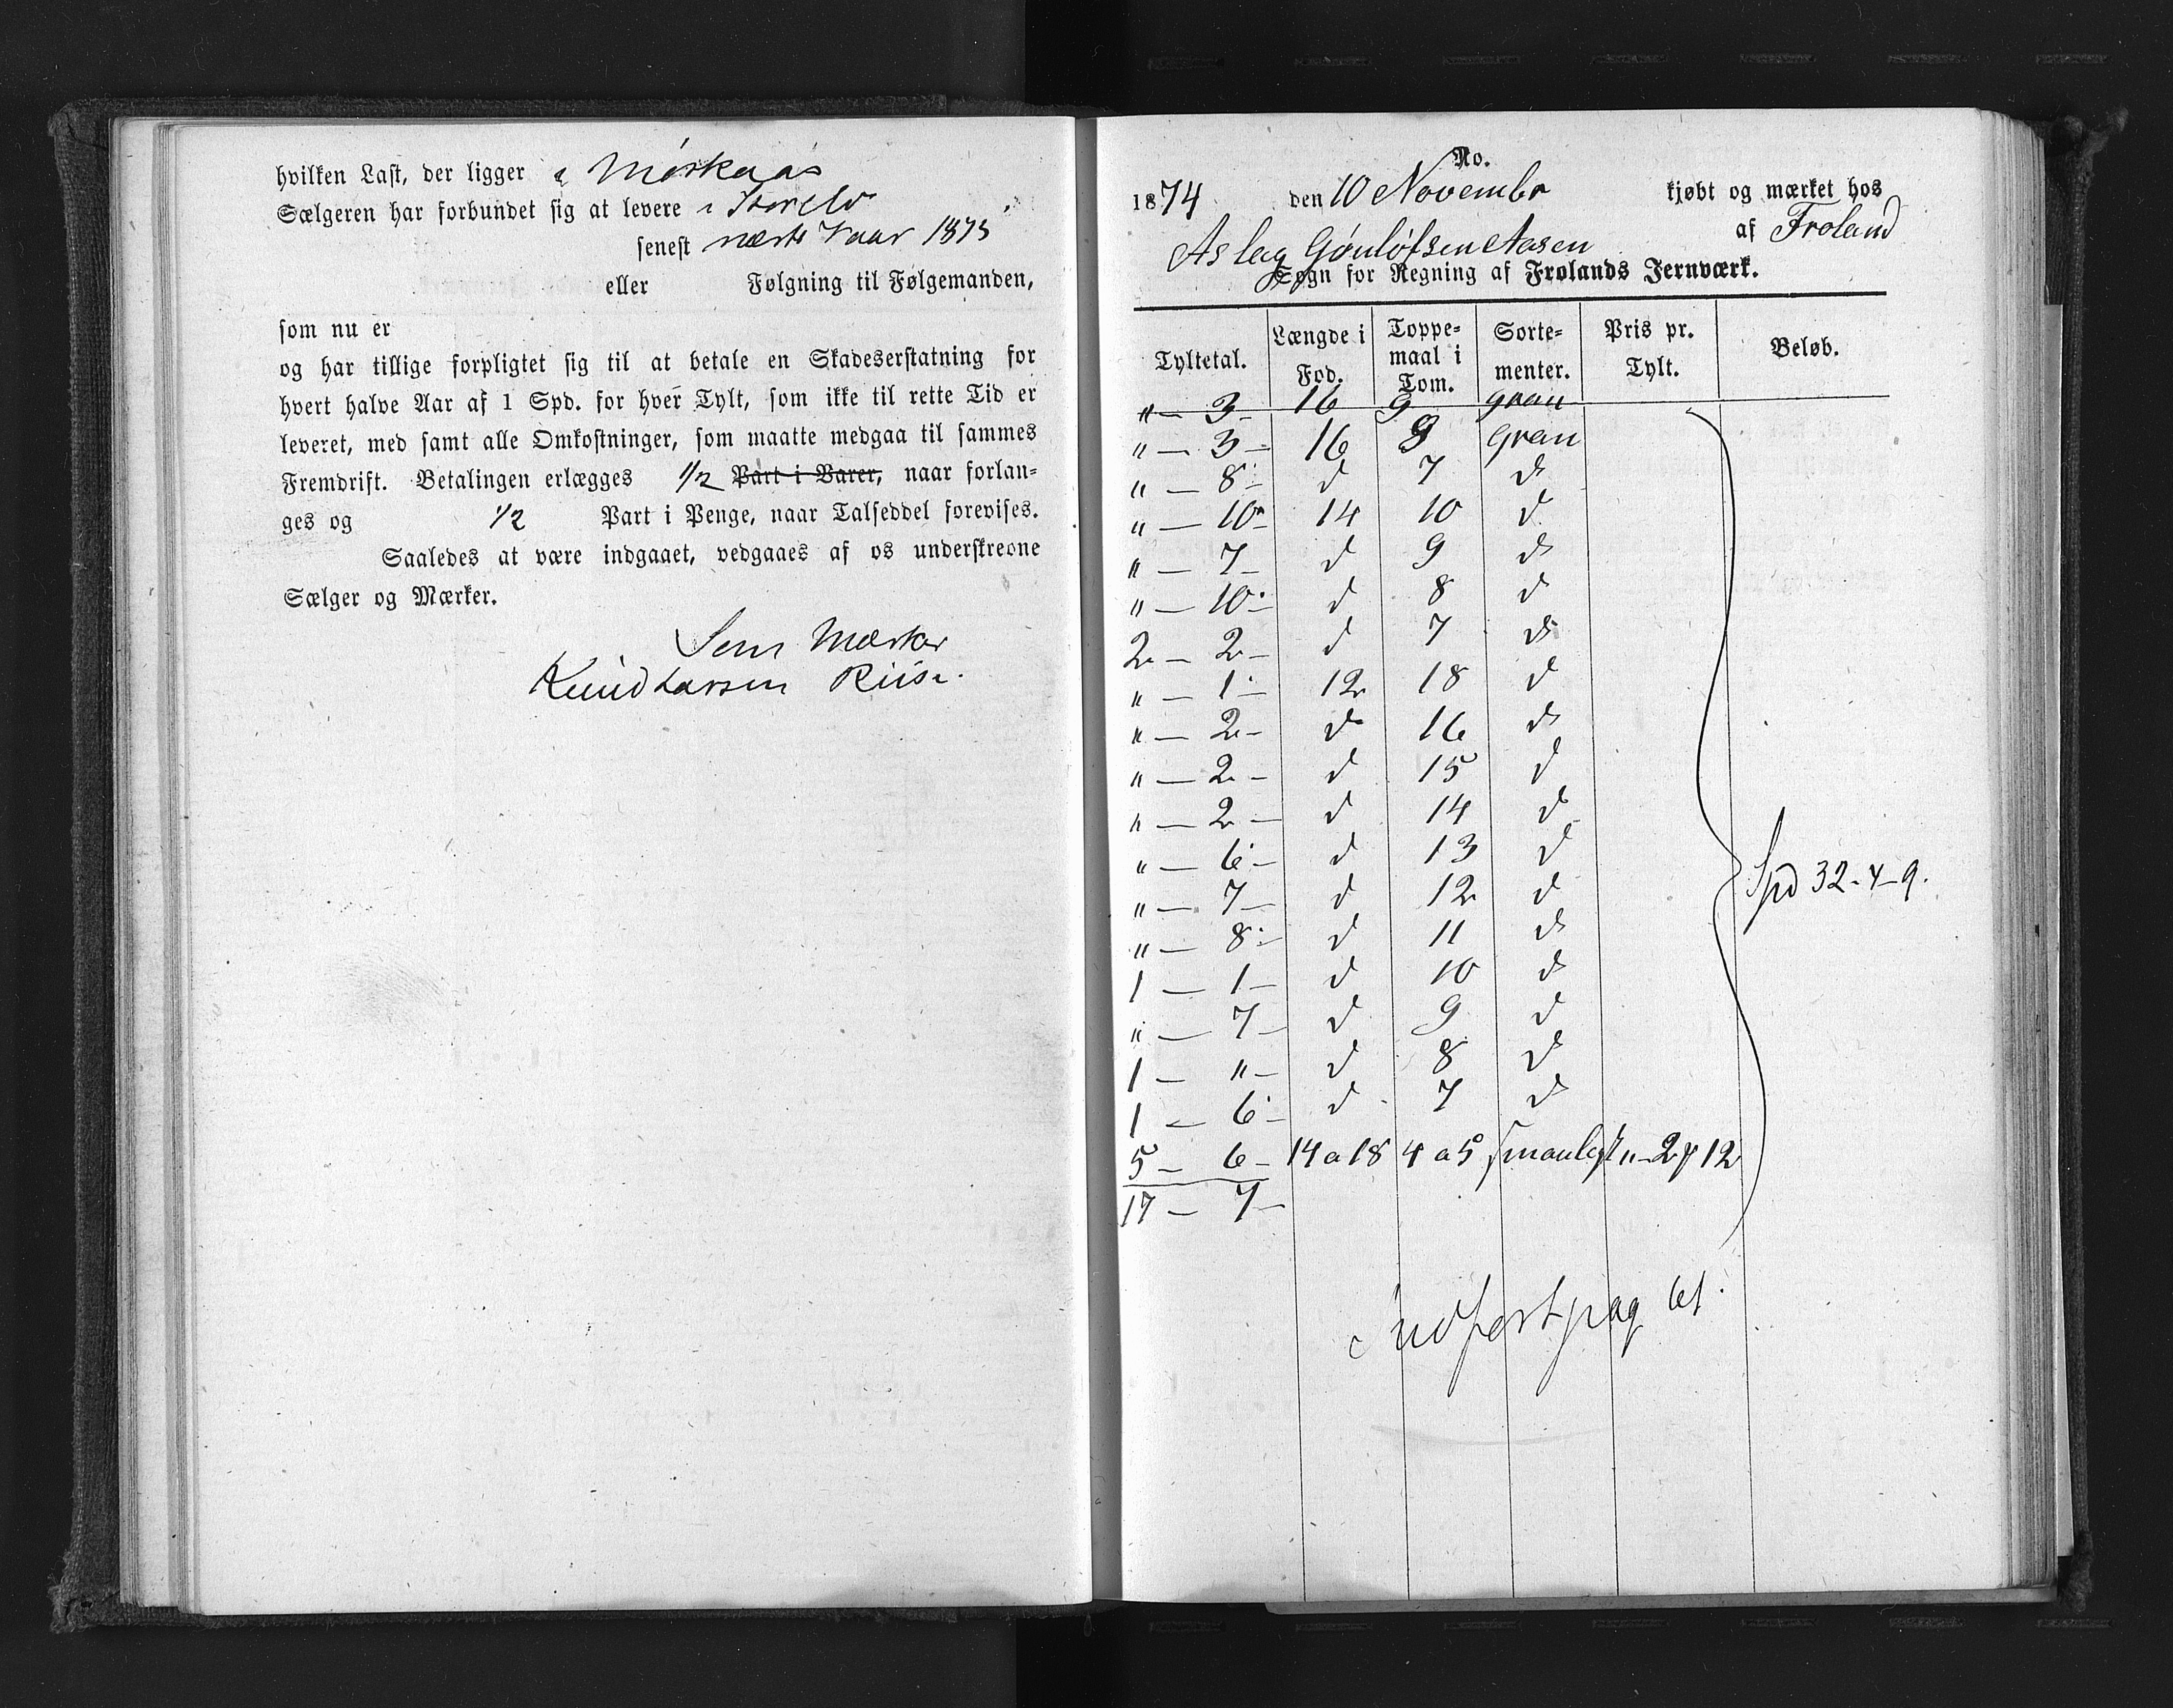 hvilken Last, der ligger i Mørkaas
Sælgeren har forbundet sig at levere i Storelv
senest næste Vaar 1875
eller Følgning til Følgemanden,
som nu er
og har tillige forpligtet sig til at betale en Skadeserstatning for
hvert halve Aar af 1 Spd. for hver Tylt, som ikke til rette Tid er
leveret, med samt alle Omkostninger, som maatte medgaa til sammes
Fremdrift. Betalingen erlægges 1/2 Part i Varer, naar forlan-
ges og 1/2 Part i Penge, naar Talseddel forevises.
Saaledes at være indgaaet, vedgaaes af os underskrevne
Sælger og Mærker.
Som Mærker
Knud Larsen Riise.
No.
1874 den 10 Novembr kjøbt og mærket hos
Aslag Gønløfsen Aasen af Froland
Sogn for Regning af Frolands Jernværk.
Tyltetal. Længde i Fod. Toppe-maal i Tom. Sorte-menter. Pris pr. Tylt. Beløb.
" — 3 — 16 9 gran
" — 3 — 16 9 gran
" — 8 — d 7 d
" — 10 — 14 10 d
" — 7 — d 9 d
" — 10 — d 8 d
2 — 2 — d 7 d
" — 1 — 12 18 d
" — 2 — d 16 d
" — 2 — d 15 d
" — 2 — d 14 d
" — 6 — d 13 d
" — 7 — d 12 d
" — 8 — d 11 d
1 — 1 — d 10 d
" — 7 — d 9 d
1 — " — d 8 d
1 — 6 — d 7 d
Spd 32-4-9.
5 — 6 — 14 a 18 4 a 5 smaalast "-2 12
17 — 7 —
Indført pag 61.